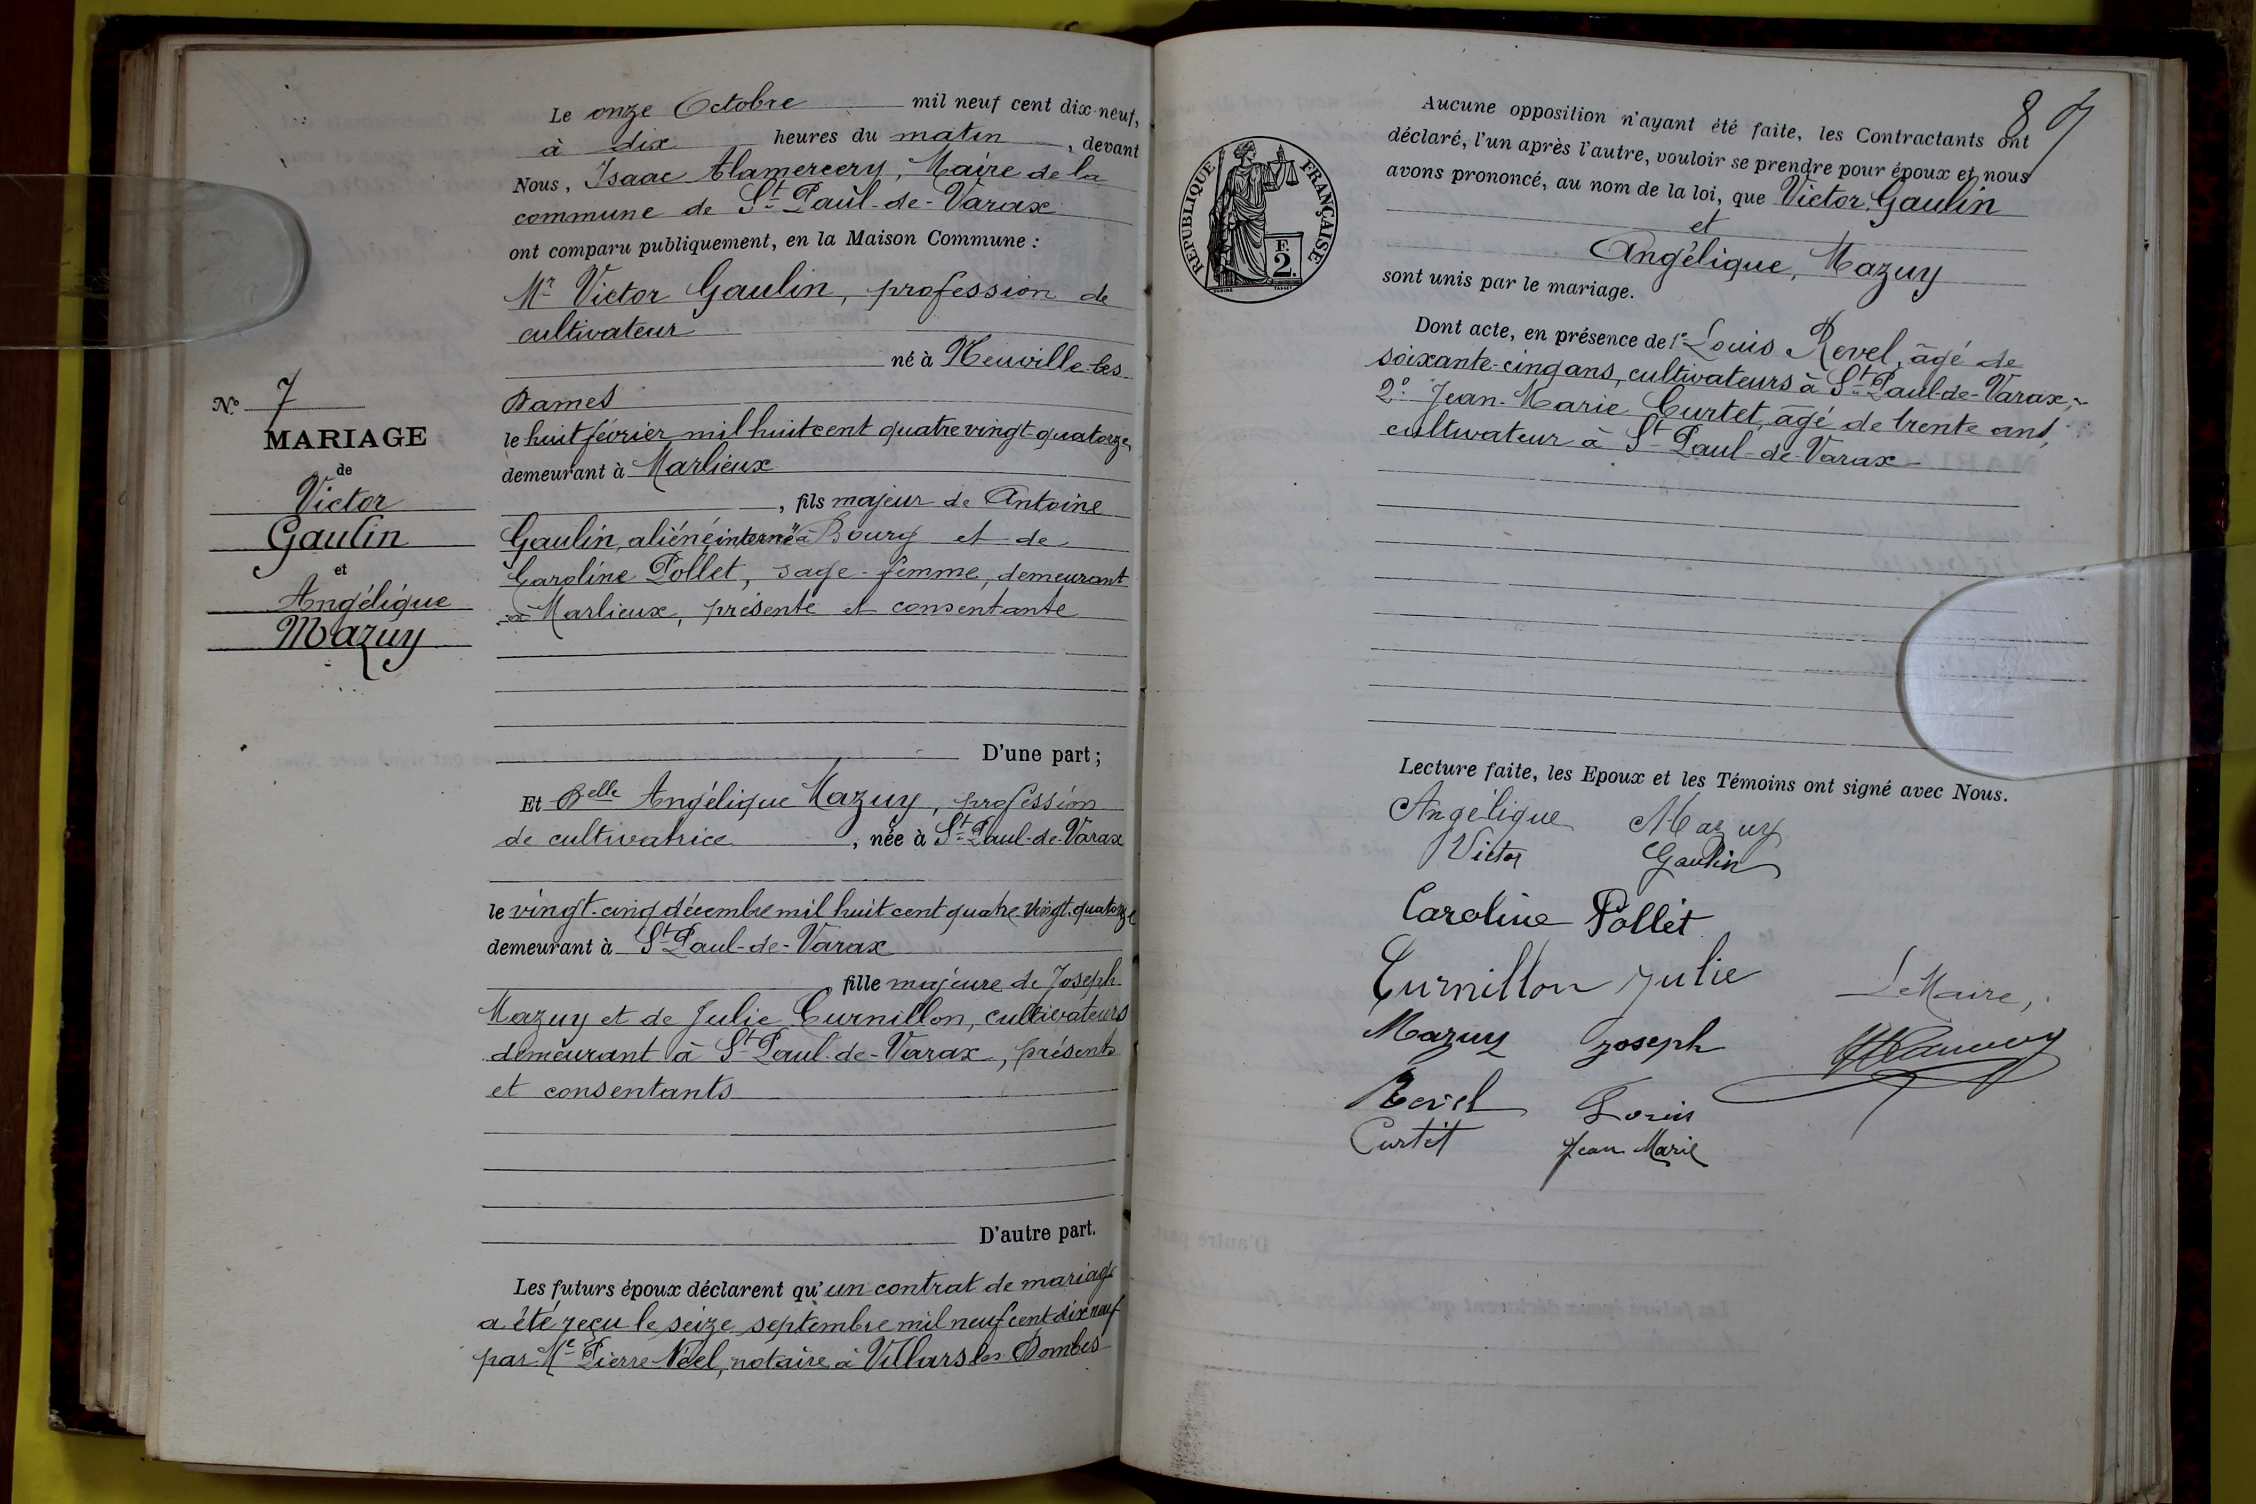 Le onze Octobre mil neuf cent dix-neuf,
à dix heures du matin, devant
Nous, Isaac Alamercery, Maire de la
commune de St Paul-de-Varax
ont comparu publiquement, en la Maison Commune :
Mr Victor Gaulin, profession de
cultivateur
né à Neuville-les-
Dames
le huit février mil huit cent quatre vingt-quatorze,
demeurant à Marlieux
, fils majeur de Antoine
Gaulin, aliéné interné à Bourg et de
Caroline Pollet, sage-femme, demeurant
à Marlieux, présente et consentante
N° 7
MARIAGE
de
Victor
Gaulin
et
Angélique
Mazuy
D'une part ;
Et Delle Angélique Mazuy, profession
de cultivatrice, née à St Paul-de-Varax
le vingt-cinq décembre mil huit cent quatre-vingt-quatorze
demeurant à St Paul-de-Varax
fille majeure de Joseph
Mazuy et de Julie Curnillon, cultivateurs
demeurant à St Paul-de-Varax, présents
et consentants
D'autre part.
Les futurs époux déclarent qu'un contrat de mariage
a été reçu le seize septembre mil neuf cent dix neuf
par Me Pierre Néel, notaire à Villars les Dombes
8
Aucune opposition n'ayant été faite, les Contractants ont
déclaré, l'un après l'autre, vouloir se prendre pour époux et nous
avons prononcé, au nom de la loi, que Victor Gaulin
et
Angélique, Mazuy
sont unis par le mariage.
RÉPUBLIQUE FRANÇAISE
F.
2.
Dont acte, en présence de 1° Louis Revel, âgé de
soixante-cinq ans, cultivateurs à St Paul-de-Varax,
2° Jean-Marie Curtet, âgé de trente ans,
cultivateur à St Paul-de-Varax
Lecture faite, les Epoux et les Témoins ont signé avec Nous.
Angélique Mazuy
Victor Gaulin
Caroline Pollet
Curnillon Julie
Le Maire,
Mazuy Joseph
Revel Louis
Curtet Jean Marie